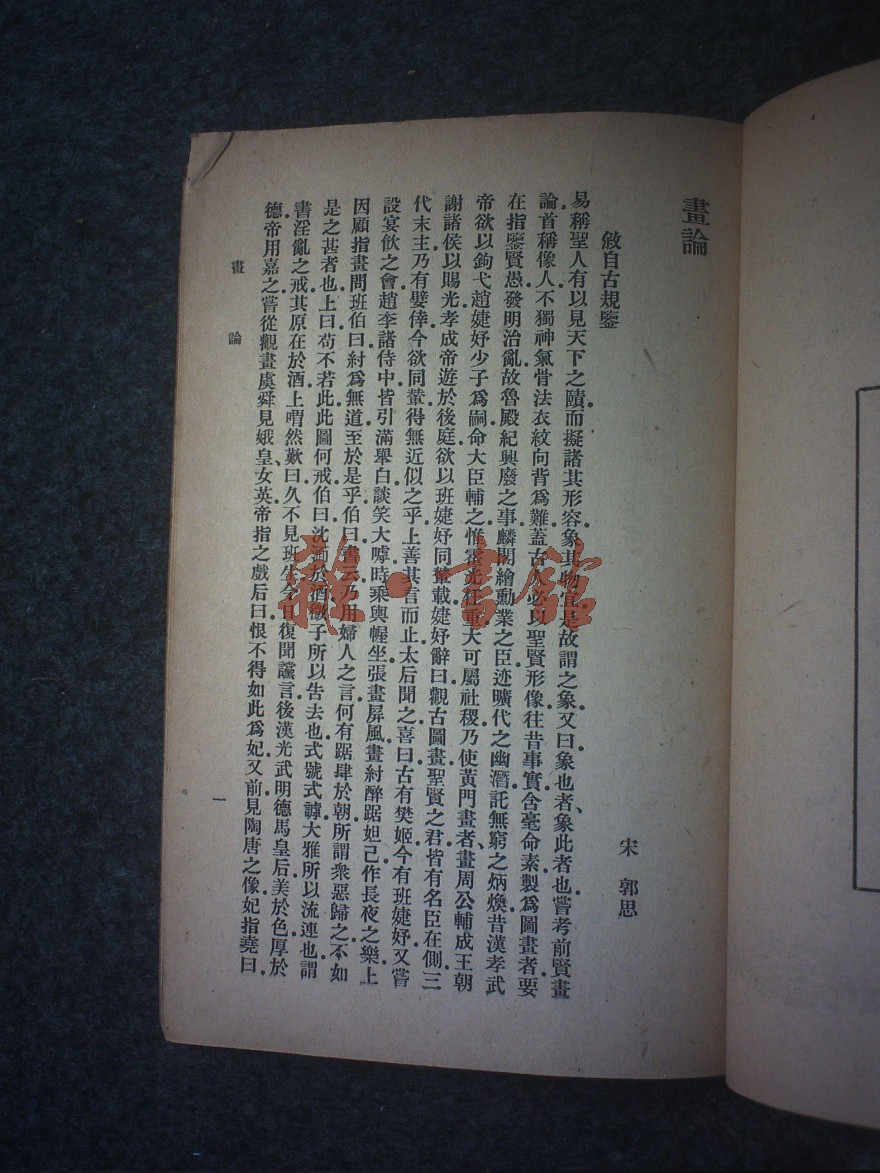 畫論
宋 郭思
敘自古規鑒
易稱聖人有以見天下之賾而擬諸其形容象其物宜是故謂之象又曰象也者象此者也嘗考前賢畫
論首稱像人不獨神氣骨法衣紋向背爲難蓋古人必以聖賢形像往昔事實含毫命素製爲圖畫者要
在指鑒賢愚發明治亂故魯殿紀興廢之事麟閣繪勳業之臣迹曠代之幽潛託無窮之炳煥昔漢孝武
帝欲以鉤弋趙婕妤少子爲嗣命大臣輔之惟霍光任重大可屬社稷乃使黃門畫者畫周公輔成王朝
謝諸侯以賜光孝成帝遊於後庭欲以班婕妤同輦載婕妤辭曰觀古圖畫聖賢之君皆有名臣在側三
代末主乃有嬖倖今欲同輦得無近似之乎上善其言而止太后聞之喜曰古有樊姬今有班婕妤又嘗
設宴飲之會趙李諸侍中皆引滿舉白談笑大噱時乘輿幄坐張畫屏風畫紂醉踞妲己作長夜之樂上
因顧指畫問班伯曰紂爲無道至於是乎伯曰書云乃用婦人之言何有踞肆於朝所謂衆惡歸之不如
是之甚者也上曰苟不若此此圖何戒伯曰沈湎於酒微子所以告去也式號式謼大雅所以流連也謂
書淫亂之戒其原在於酒上喟然歎曰久不見班生今日復聞讜言後漢光武明德馬皇后美於色厚於
德帝用嘉之嘗從觀畫虞舜見娥皇女英帝指之戲后曰恨不得如此爲妃又前見陶唐之像妃指堯曰
畫論
一
雜·書館